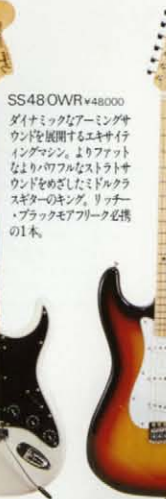 SS48OWR ¥48000
ダイナミックなアーミングサ
ウンドを展開するエキサイテ
ィングマシン。よりファット
なよりパワフルなストラトサ
ウンドをめざしたミドルクラ
スギターのキング。リッチー
・ブラックモアフリーク必携
の1本。